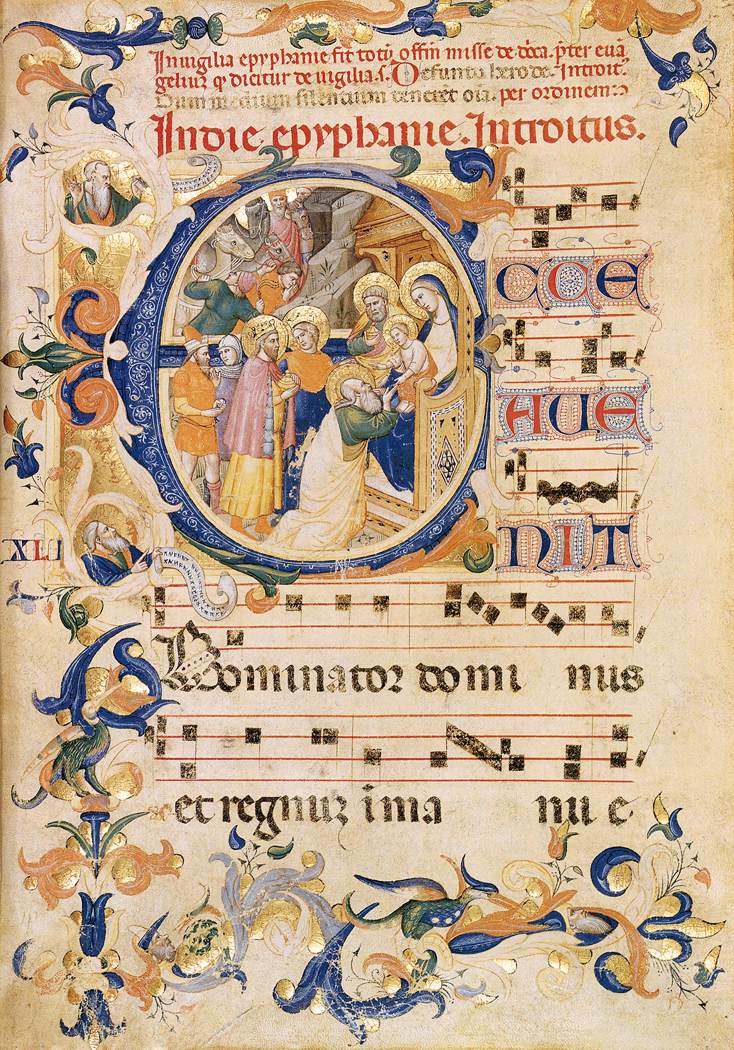 In uigilia epyphanie fit totũ offm̃ misse de dñca. pter euã
geliuz qp dicitur de uigilia. s. Defuncto herode. Introit.
Dum medium silencium teneret oĩa. per ordinem:
In die epyphanie. Introitus.
E
CCE
AUE
NIT
XLI
Dominator domi nus
et regnuz i ma nu e